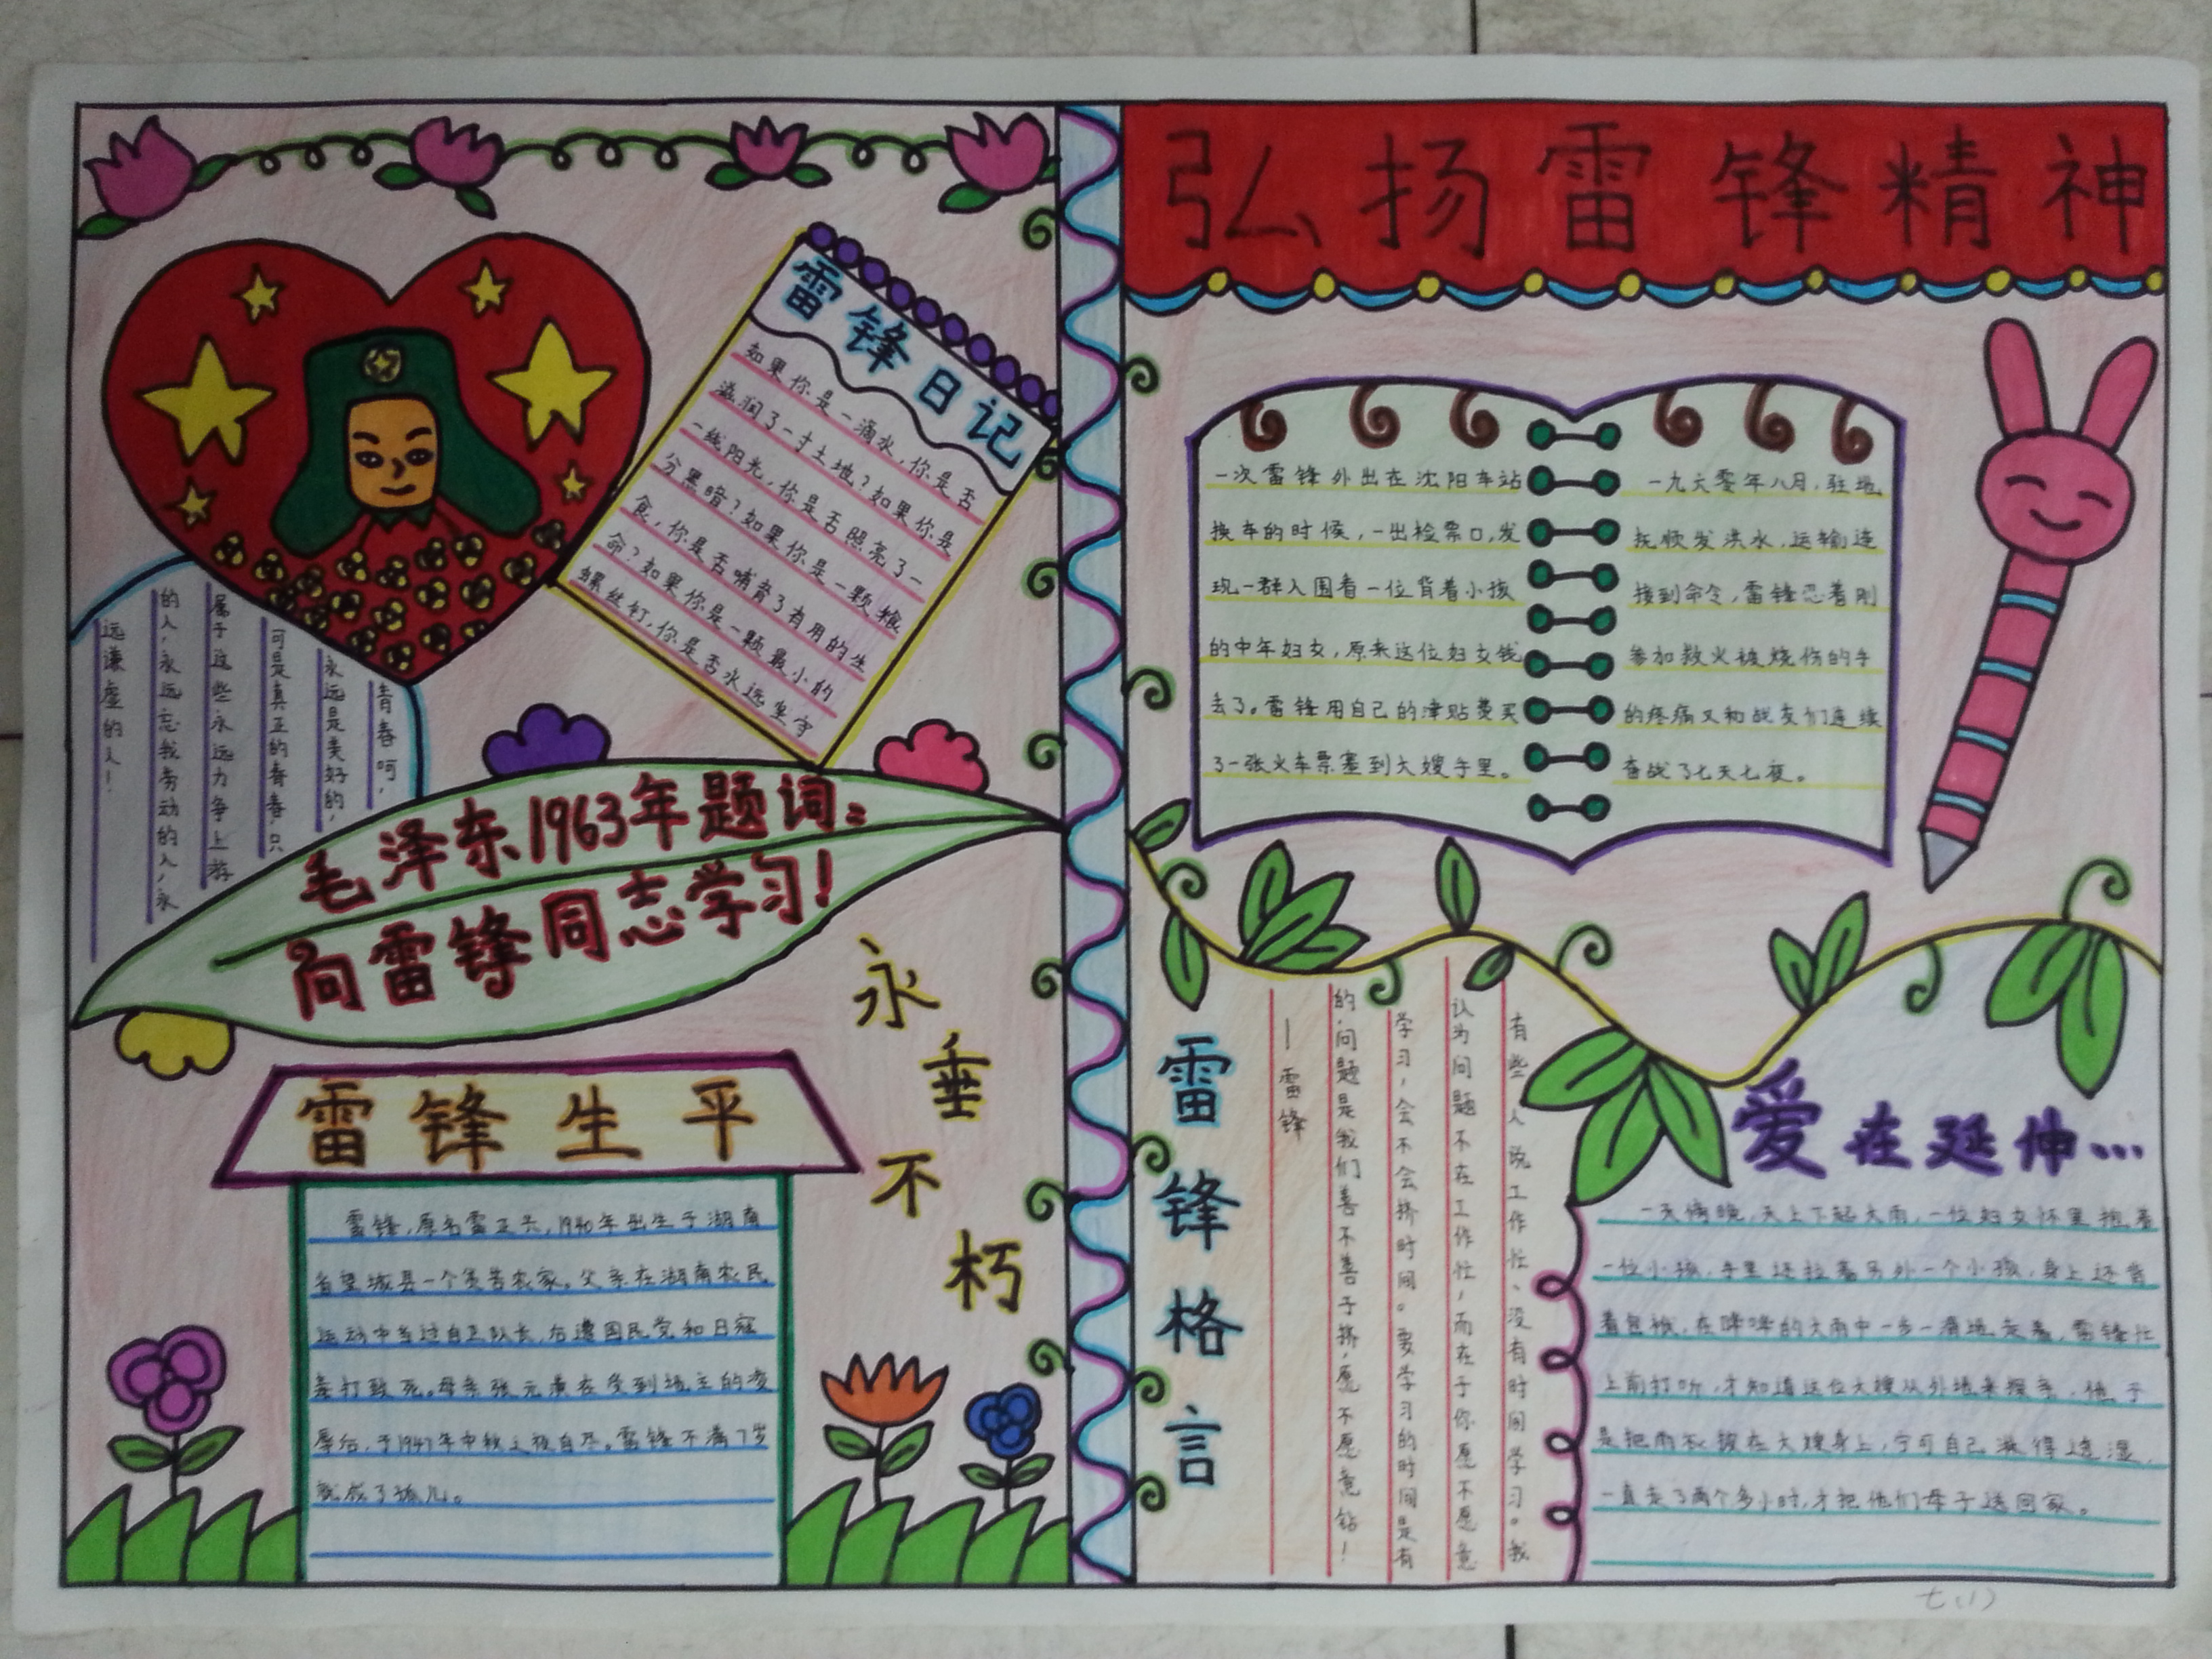 弘扬雷锋精神
雷锋日记
如果你是一滴水，你是否
滋润了一寸土地？如果你是
一线阳光，你是否照亮了一
分黑暗？如果你是一颗粮
食，你是否哺育了有用的生
命？如果你是一颗最小的
螺丝钉，你是否永远坚守
青春呵，
永远是美好的，
可是真正的青春，只
属于这些永远力争上游
的人，永远忘我劳动的人，永
远谦虚的人！
毛泽东1963年题词：
向雷锋同志学习！
永垂不朽
雷锋生平
雷锋，原名雷正兴，1940年出生于湖南
省望城县一个贫苦农家。父亲在湖南农民
运动中当过自卫队长，后遭国民党和日寇
毒打致死。母亲张元满在受到地主的凌
辱后，于1947年中秋之夜自尽。雷锋不满7岁
就成了孤儿。
一次雷锋外出在沈阳车站
换车的时候，一出检票口，发
现一群人围看一位背着小孩
的中年妇女，原来这位妇女钱
去了。雷锋用自己的津贴费买
了一张火车票塞到大嫂手里。
一九六零年八月，驻地
抚顺发洪水，运输连
接到命令，雷锋忍着刚
参加救火被烧伤的手
的疼痛又和战友们连续
奋战了七天七夜。
雷锋格言
有些人说工作忙、没有时间学习。我
认为问题不在工作忙，而在于你愿不愿意
学习，会不会挤时间。要学习的时间是有
的，问题是我们善不善于挤，愿不愿意钻！
—雷锋
爱在延伸…
一天傍晚，天上下起大雨，一位妇女怀里抱着
一位小孩，手里还拉着另外一个小孩，身上还背
着包袱，在哗哗的大雨中一步一滑地走着，雷锋忙
上前打听，才知道这位大嫂从外地来探亲，他于
是把雨衣披在大嫂身上，宁可自己淋得透湿，
一直走了两个多小时，才把他们母子送回家。
七（1）